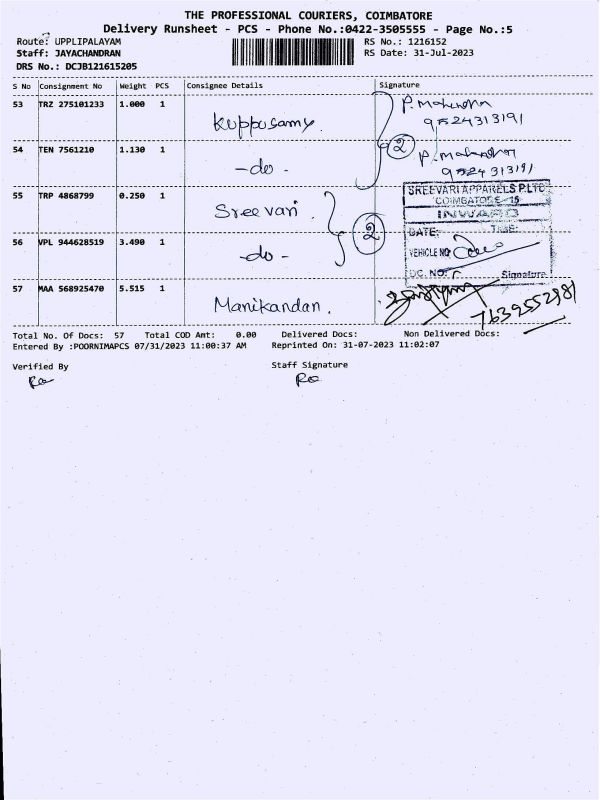 THE PROFESSIONAL COURIERS, COIMBATORE
Delivery Runsheet - PCS - Phone No.:0422-3505555 - Page No.:5
Route: UPPLIPALAYAM RS No.: 1216152
Staff: JAYACHANDRAN RS Date: 31-Jul-2023
DRS No.: DCJB121615205
S No Consignment No Weight PCS Consignee Details Signature
53 TRZ 275101233 1.000 1 Kuppusamy P. Mahendra
9524313191
54 TEN 7561210 1.130 1 -do- 2 P. Mahendra
9524313191
55 TRP 4868799 0.250 1 Sreevari SREEVARI APPARELS P.LTD
COIMBATORE-15
INWARD
DATE: TIME:
56 VPL 944628519 3.490 1 -do- 2 VEHICLE NO
DC. NO. Signature
57 MAA 568925470 5.515 1 Manikandan. 7639552981
Total No. Of Docs: 57 Total COD Amt: 0.00 Delivered Docs: Non Delivered Docs:
Entered By :POORNIMAPCS 07/31/2023 11:00:37 AM Reprinted On: 31-07-2023 11:02:07
Verified By Staff Signature